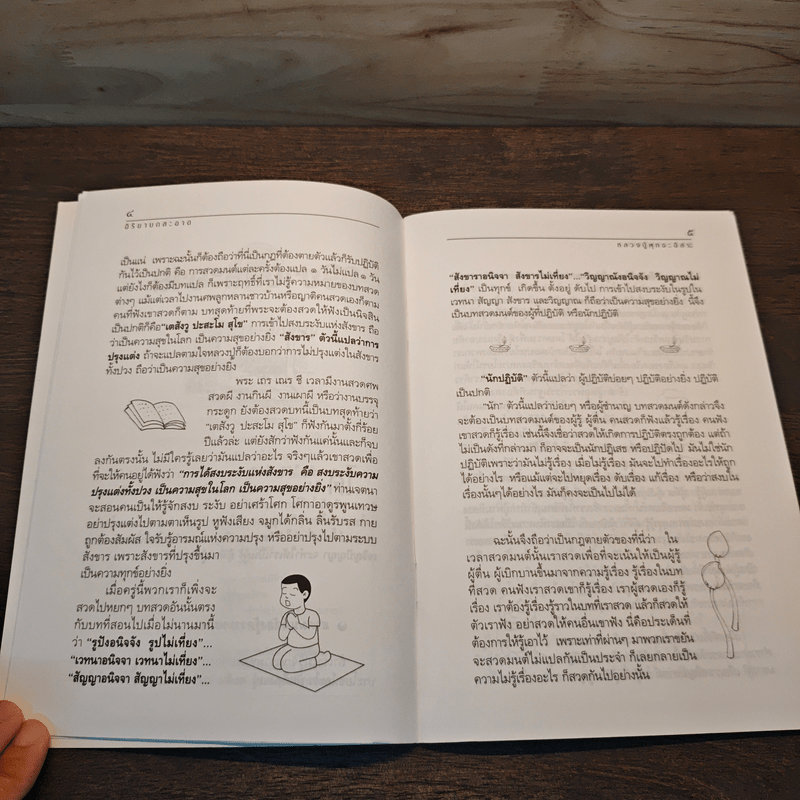 ๔
อิริยาบถสะอาด
เป็นแน่ เพราะฉะนั้นก็ต้องถือว่าที่นี่เป็นกฎที่ต้องตายตัวแล้วก็รับปฏิบัติ
กันไว้เป็นปกติ คือ การสวดมนต์แต่ละครั้งต้องแปล ๑ วันไม่แปล ๑ วัน
แต่ยังไงก็ต้องมีบทแปล ก็เพราะฤทธิ์ที่เราไม่รู้ความหมายของบทสวด
ต่างๆ แม้แต่เวลาไปงานศพลูกหลานชาวบ้านหรือญาติคนสวดเองก็ตาม
คนที่ฟังเขาสวดก็ตาม บทสุดท้ายที่พระจะต้องสวดให้ฟังเป็นนิจสิน
เป็นปกติก็คือ “เตสังวู ปะสะโม สุโข” การเข้าไปสงบระงับแห่งสังขาร ถือ
ว่าเป็นความสุขในโลก เป็นความสุขอย่างยิ่ง “สังขาร” ตัวนี้แปลว่าการ
ปรุงแต่ง ถ้าจะแปลตามใจหลวงปู่ก็ต้องบอกว่าการไม่ปรุงแต่งในสังขาร
ทั้งปวง ถือว่าเป็นความสุขอย่างยิ่ง
พระ เถร เณร ชี เวลามีงานสวดศพ
สวดผี งานกินผี งานเผาผี หรือว่างานบรรจุ
กระดูก ยังต้องสวดบทนี้เป็นบทสุดท้ายว่า
“เตสังวู ปะสะโม สุโข” ก็ฟังกันมาตั้งกี่ร้อย
ปีแล้วล่ะ แต่ยังสักว่าฟังกันแค่นั้นและก็จบ
ลงกันตรงนั้น ไม่มีใครรู้เลยว่ามันแปลว่าอะไร จริงๆแล้วเขาสวดเพื่อ
ที่จะให้คนอยู่ได้ฟังว่า “การได้สงบระงับแห่งสังขาร คือ สงบระงับความ
ปรุงแต่งทั้งปวง เป็นความสุขในโลก เป็นความสุขอย่างยิ่ง” ท่านเจตนา
จะสอนคนเป็นให้รู้จักสงบ ระงับ อย่าเศร้าโศก โศกาอาดูรพูนเทวษ
อย่าปรุงแต่งไปตามตาเห็นรูป หูฟังเสียง จมูกได้กลิ่น ลิ้นรับรส กาย
ถูกต้องสัมผัส ใจรับรู้อารมณ์แห่งความปรุง หรืออย่าปรุงไปตามระบบ
สังขาร เพราะสังขารที่ปรุงขึ้นมา
เป็นความทุกข์อย่างยิ่ง
เมื่อครู่นี้พวกเราก็เพิ่งจะ
สวดไปหยกๆ บทสวดอันนั้นตรง
กับบทที่สอนไปเมื่อไม่นานมานี้
ว่า “รูปังอนิจจัง รูปไม่เที่ยง”...
“เวทนาอนิจจา เวทนาไม่เที่ยง”...
“สัญญาอนิจจา สัญญาไม่เที่ยง”...
๕
หลวงปู่พุทธะอิสระ
“สังขาราอนิจจา สังขารไม่เที่ยง”...“วิญญาณังอนิจจัง วิญญาณไม่
เที่ยง” เป็นทุกข์ เกิดขึ้น ตั้งอยู่ ดับไป การเข้าไปสงบระงับในรูปใน
เวทนา สัญญา สังขาร และวิญญาณ ก็ถือว่าเป็นความสุขอย่างยิ่ง นี่จึง
เป็นบทสวดมนต์ของผู้ที่ปฏิบัติ หรือนักปฏิบัติ
“นักปฏิบัติ” ตัวนี้แปลว่า ผู้ปฏิบัติบ่อยๆ ปฏิบัติอย่างยิ่ง ปฏิบัติ
เป็นปกติ
“นัก” ตัวนี้แปลว่าบ่อยๆ หรือผู้ชำนาญ บทสวดมนต์ดังกล่าวจึง
จะต้องเป็นบทสวดมนต์ของผู้รู้ ผู้ตื่น คนสวดก็ฟังแล้วรู้เรื่อง คนฟัง
เขาสวดก็รู้เรื่อง เช่นนี้จึงเชื่อว่าสวดให้เกิดการปฏิบัติตรงถูกต้อง แต่ถ้า
ไม่เป็นดังที่กล่าวมา ก็อาจจะเป็นนักปฏิเสธ หรือปฏิปิดไป มันไม่ใช่นัก
ปฏิบัติเพราะว่ามันไม่รู้เรื่อง เมื่อไม่รู้เรื่อง มันจะไปทำเรื่องอะไรให้ถูก
ได้อย่างไร หรือแม้แต่จะไปหยุดเรื่อง ดับเรื่อง แก้เรื่อง หรือว่าสงบใน
เรื่องนั้นๆได้อย่างไร มันก็คงจะเป็นไปไม่ได้
ฉะนั้นจึงถือว่าเป็นกฎตายตัวของที่นี่ว่า ใน
เวลาสวดมนต์นั้นเราสวดเพื่อที่จะเน้นให้เป็นผู้รู้
ผู้ตื่น ผู้เบิกบานขึ้นมาจากความรู้เรื่อง รู้เรื่องในบท
ที่สวด คนฟังเราสวดเขาก็รู้เรื่อง เราผู้สวดเองก็รู้
เรื่อง เราต้องรู้เรื่องรู้ราวในบทที่เราสวด แล้วก็สวดให้
ตัวเราฟัง อย่าสวดให้คนอื่นเขาฟัง นี่คือประเด็นที่
ต้องการให้รู้เอาไว้ เพราะเท่าที่ผ่านๆ มาพวกเราขยัน
จะสวดมนต์ไม่แปลกันเป็นประจำ ก็เลยกลายเป็น
ความไม่รู้เรื่องอะไร ก็สวดกันไปอย่างนั้น